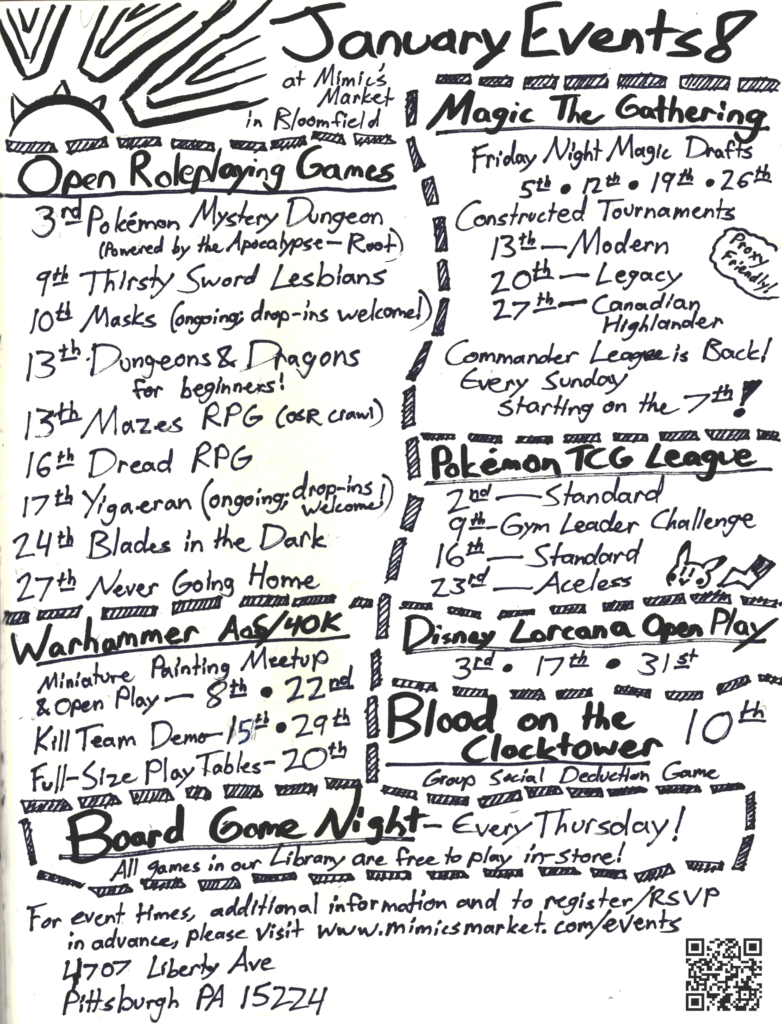 January Events!
at Mimic's
Market
in Bloomfield
Open Roleplaying Games
3rd Pokémon Mystery Dungeon
(Powered by the Apocalypse - Root)
9th Thirsty Sword Lesbians
10th Masks (ongoing; drop-ins welcome!)
13th Dungeons & Dragons
for beginners!
13th Mazes RPG (OSR crawl)
16th Dread RPG
17th Yigaeran (ongoing; drop-ins
welcome!)
24th Blades in the Dark
27th Never Going Home
Warhammer AoS/40K
Miniature Painting Meetup
& Open Play - 8th • 22nd
Kill Team Demo - 15th • 29th
Full-Size Play Tables - 20th
Magic The Gathering
Friday Night Magic Drafts
5th • 12th • 19th • 26th
Constructed Tournaments
13th - Modern
20th - Legacy
27th - Canadian
Highlander
Proxy
Friendly!
Commander League is Back!
Every Sunday
starting on the 7th!
Pokémon TCG League
2nd - Standard
9th - Gym Leader Challenge
16th - Standard
23rd - Aceless
Disney Lorcana Open Play
3rd • 17th • 31st
Blood on the
Clocktower 10th
Group Social Deduction Game
Board Game Night - Every Thursday!
All games in our Library are free to play in-store!
For event times, additional information and to register/RSVP
in advance, please visit www.mimicsmarket.com/events
4707 Liberty Ave
Pittsburgh PA 15224